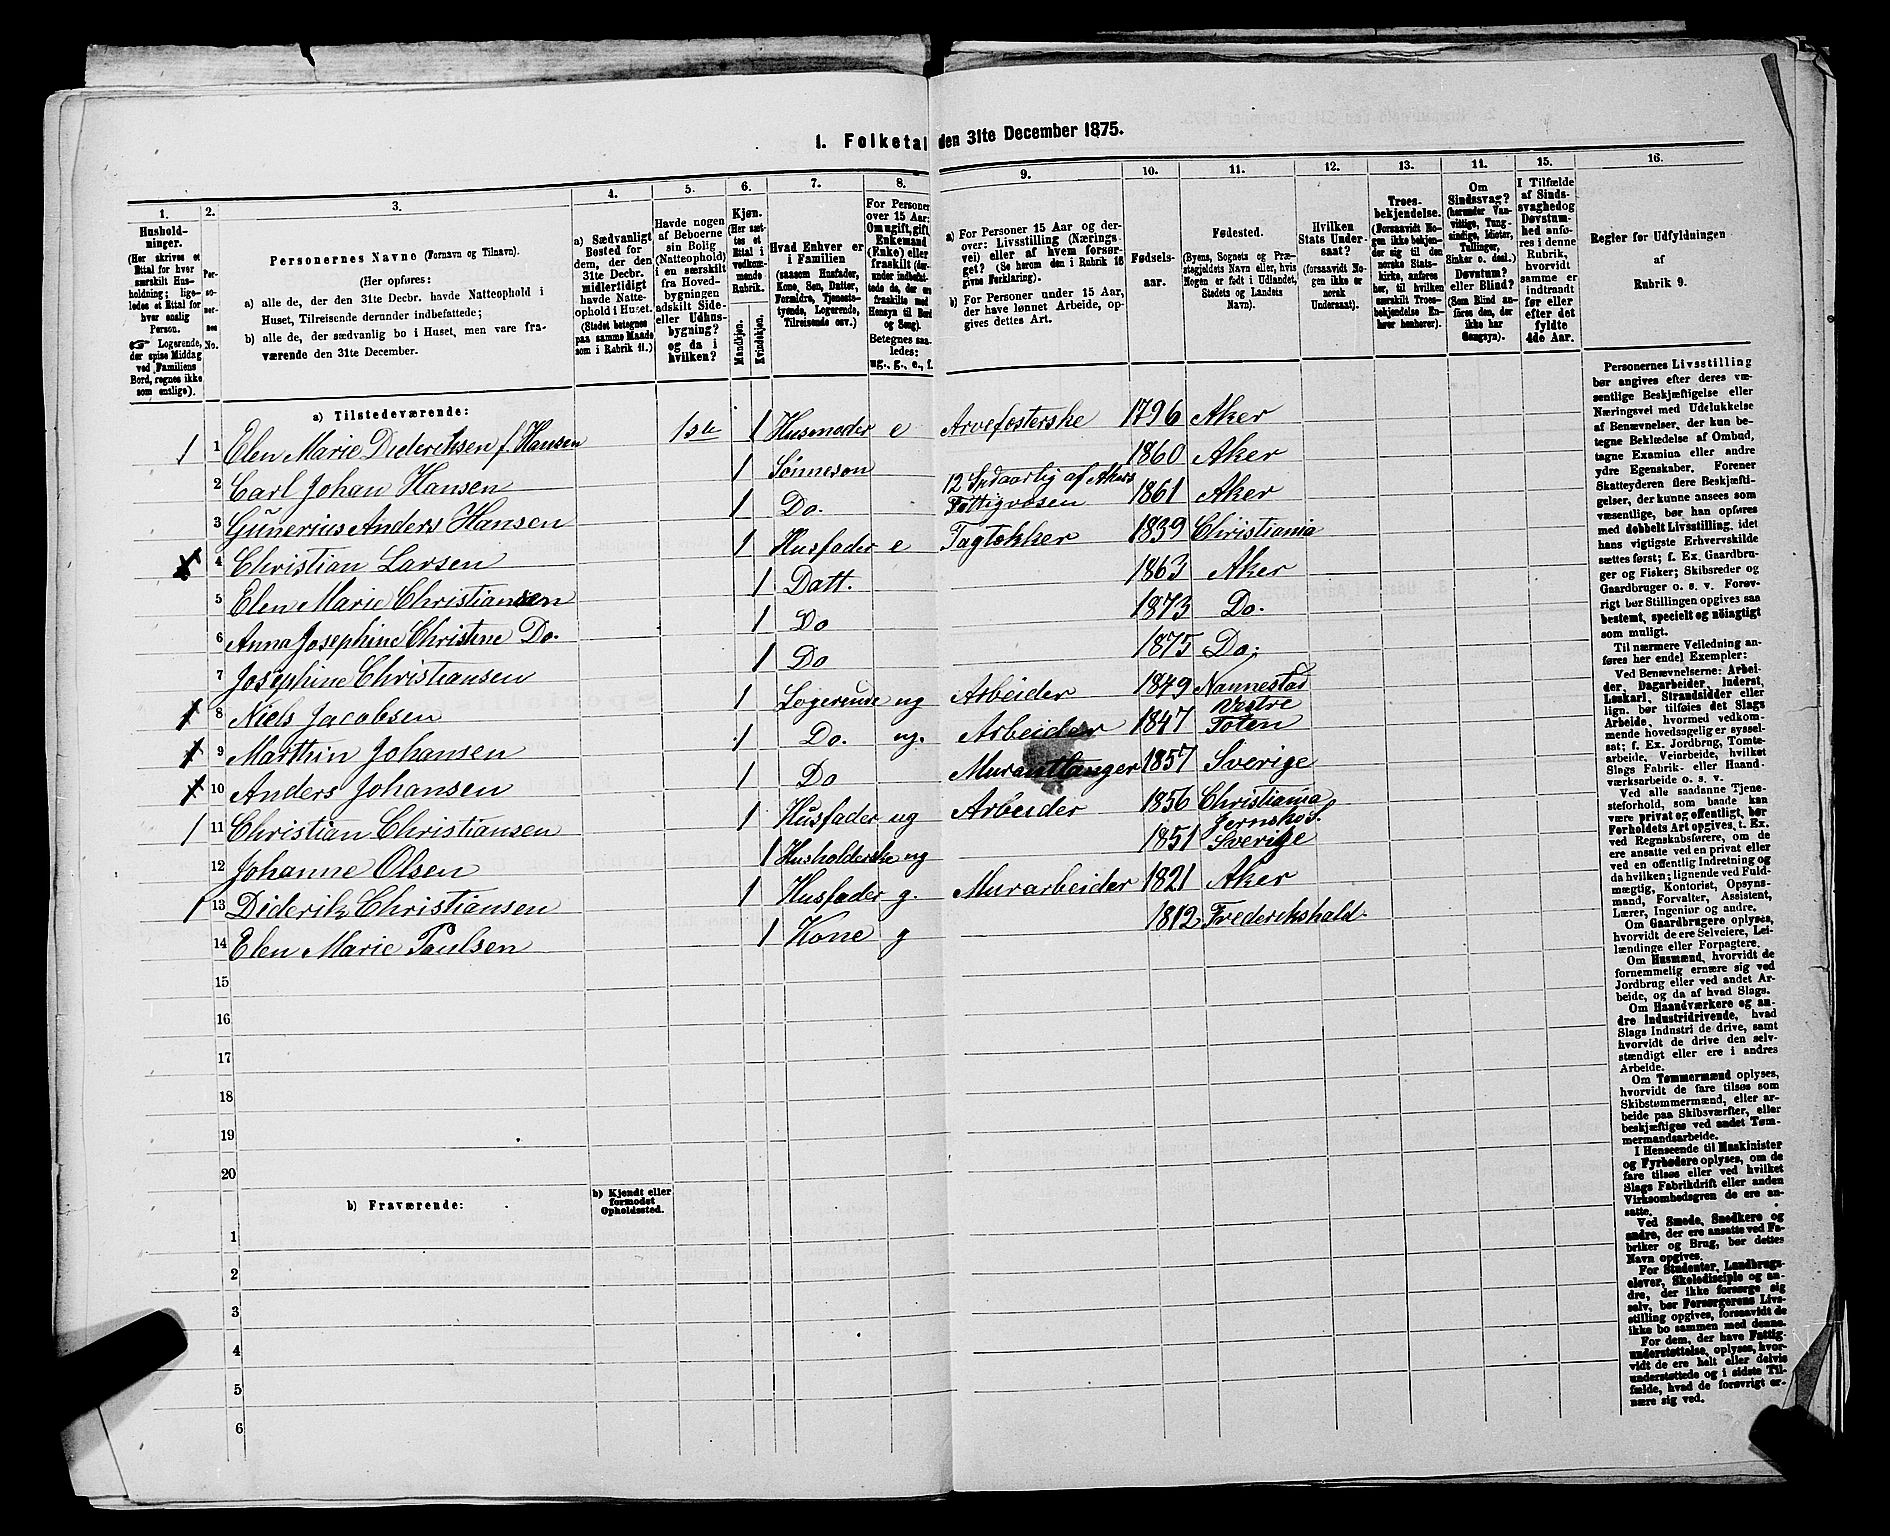 1. Folketal den 31te December 1875.
1.
2.
3.
4.
5.
6.
7.
8.
9.
10.
11.
12.
13.
14.
15.
16.
Hushold-
ninger.
(Her skrives et
Ettal for hver
særskilt Hus-
holdning; lige-
ledes et Ettal for
hver enslig
Person.
☞ Logerende,
der spise Middag
ved Familiens
Bord, regnes ikke
som enslige).
Per-
so-
ner-
nes
No.
Personernes Navne (Fornavn og Tilnavn).
(Her opføres:
a) alle de, der den 31te Decbr. havde Natteophold i
Huset, Tilreisende derunder indbefattede;
b) alle de, der sædvanlig bo i Huset, men vare fra-
værende den 31te December.
a) Sædvanligt
Bosted for
dem, der den
31te Decbr.
midlertidigt
havde Natte-
ophold i Huset.
(Stedet betegnes
paa samme Maade
som i Rubrik 11.)
Havde nogen
af Beboerne
sin Bolig
(Natteophold)
i en særskilt
fra Hoved-
bygningen
adskilt Side-
eller Udhus-
bygning?
og da i
hvilken?
Kjøn.
(Her sæt-
tes et
Ettal i
vedkom-
mende
Rubrik.
Mandkjøn.
Kvindekjøn.
Hvad Enhver er
i Familien
(saasom Husfader,
Kone, Søn, Datter,
Forældre, Tjeneste-
tyende, Logerende,
Tilreisende osv.)
For Personer
over 15 Aar:
Om ugift, gift,
Enkemand
(Enke) eller
fraskilt (der-
under indbefat-
tede de, der ere
fraskilte med
Hensyn til Bord
og Seng).
Betegnes saa-
ledes:
ug., g., e., f.
a) For Personer 15 Aar og der-
over: Livsstilling (Nærings-
vei) eller af hvem forsør-
get? (Se herom den i Rubrik 16
givne Forklaring).
b) For Personer under 15 Aar,
der have lønnet Arbeide, op-
gives dettes Art.
Fødsels-
aar.
Fødested.
(Byens, Sognets og Præ-
stegjeldets Navn eller, hvis
Nogen er født i Udlandet,
Stedets og Landets
Navn).
Hvilken
Stats Under-
saat?
(forsaavidt No-
gen ikke er
norsk
Undersaat).
Troes-
bekjendelse.
(Forsaavidt No-
gen ikke bekjen-
der sig til den
norske Stats-
kirke, anføres
her, til hvilken
særskilt Troes-
bekjendelse En-
hver henhører).
Om
Sindssvag?
(herunder Van-
vittige, Tung-
sindige, Idioter,
Tullinger,
Sinker o. desl.)
Døvstum?
eller Blind?
(Som Blind an-
føres den, der
ikke har
Gangsyn).
I Tilfælde
af Sinds-
svaghed og
Døvstum-
hed anfø-
res i denne
Rubrik,
hvorvidt
samme er
indtraadt
før eller
efter det
fyldte
4de Aar.
Regler før Udfyldningen
af
Rubrik 9.
a) Tilstedeværende:
1 1 Elen Marie Diderichsen f. Hansen 1 ste 1 Husmoder e Arvefosterske 1796 Aker
2 Carl Johan Hansen 1 Sønneson 1860 Aker
3 Gunerius Anders Hansen 1 Do. 12 Spdaarlig af Akers Fattigvæsen 1861 Aker
4 Christian Larsen 1 Husfader e Tagtækker 1839 Christiania
5 Elen Marie Christiansen 1 Datt. 1863 Aker
6 Anna Josephine Christine Do. 1 Do 1873 Do.
7 Josephine Christiansen 1 Do 1875 Do.
8 Niels Jacobsen 1 Logerende ug Arbeider 1849 Nannestad
9 Marthin Johansen 1 Do. ug. Arbeider 1847 Vestre Toten
10 Anders Johansen 1 Do Murantlanger 1857 Sverige
1 11 Christian Christiansen 1 Husfader ug Arbeider 1856 Christiania
12 Johanne Olsen 1 Husholderske ug 1851 Jernskog Sverige
1 13 Diderik Christiansen 1 Husfader g. Murarbeider 1821 Aker
14 Elen Marie Paulsen 1 Kone g 1812 Frederikshald.
15
16
17
18
19
20
b) Fraværende:
b) Kjendt eller
formodet
Opholdssted.
1
2
3
4
5
6
Personernes Livsstilling
bør angives efter deres væ-
sentlige Beskjæftigelse eller
Næringsvei med Udelukkelse
af Benævnelser, der kun be-
tegne Beklædelse af Ombud,
tagne Examina eller andre
ydre Egenskaber. Forener
Skatteyderen flere Beskjæfti-
gelser, der kunne ansees som
væsentlige, bør han opføres
med dobbelt Livsstilling, idet
hans vigtigste Erhvervskilde
sættes først; f. Ex. Gaardbru-
ger og Fisker; Skibsreder og
Gaardbruger o. s. v. Forøv-
rigt bør Stillingen opgives saa
bestemt, specielt og nøiagtigt
som muligt.
Til nærmere Veiledning an-
føres her endel Exempler:
Ved Benævnelserne: Arbei-
der, Dagarbeider, Inderst,
Løskarl, Strandsidder eller
lign. bør tilføies det Slags
Arbeide, hvormed vedkom-
mende hovedsagelig er syssel-
sat; f. Ex. Jordbrug, Tomte-
arbeide, Veiarbeide, hvilket
Slags Fabrik- eller Haand-
værksarbeide o. s. v.
Ved alle saadanne Tjene-
steforhold, som baade kan
være privat og offentligt, bør
Forholdets Art opgives, t. Ex.
ved Regnskabsførere, om de
ere ansatte ved en privat eller
ved en offentlig Indretning og
da hvilken; lignende ved Fuld-
mægtig, Kontorist, Opsyns-
mand, Forvalter, Assistent,
Lærer, Ingeniør og andre.
Om Gaardbrugere oplyses,
hvorvidt de ere Selveiere, Lei-
lændinge eller Forpagtere.
Om Husmænd, hvorvidt de
fornemmelig ernære sig ved
Jordbrug eller ved andet Ar-
beide, og da af hvad Slags.
Om Haandværkere og an-
dre Industridrivende, hvad
Slags Industri de drive, samt
hvorvidt de drive den selv-
stændigt eller ere i andres
Arbeide.
Om Tømmermænd oplyses,
hvorvidt de fare tilsøs som
Skibstømmermænd, eller ar-
beide paa Skibsværfter, eller
beskjæftiges ved andet Tøm-
mermandsarbeide.
I Henseende til Maskinister
og Fyrbødere oplyses, om de
fare tilsøs eller ved hvilket
Slags Fabrikdrift eller anden
Virksomhedsgren de ere an-
satte.
Ved Smede, Snedkere og
andre, der ere ansatte ved Fa-
briker og Brug, bør dettes
Navn opgives.
For Studenter, Landbrugs-
elever, Skoledisciple og an-
dre, der ikke forsørge sig
selv, bør Forsørgerens Livs-
stilling opgives, forsaavidt de
ikke bo sammen med denne.
For dem, der have Fattig-
understøttelse, oplyses, hvor-
vidt de ere helt eller delvis
understøttede og i sidste Til-
fælde, hvad de forøvrigt er-
nære sig ved.